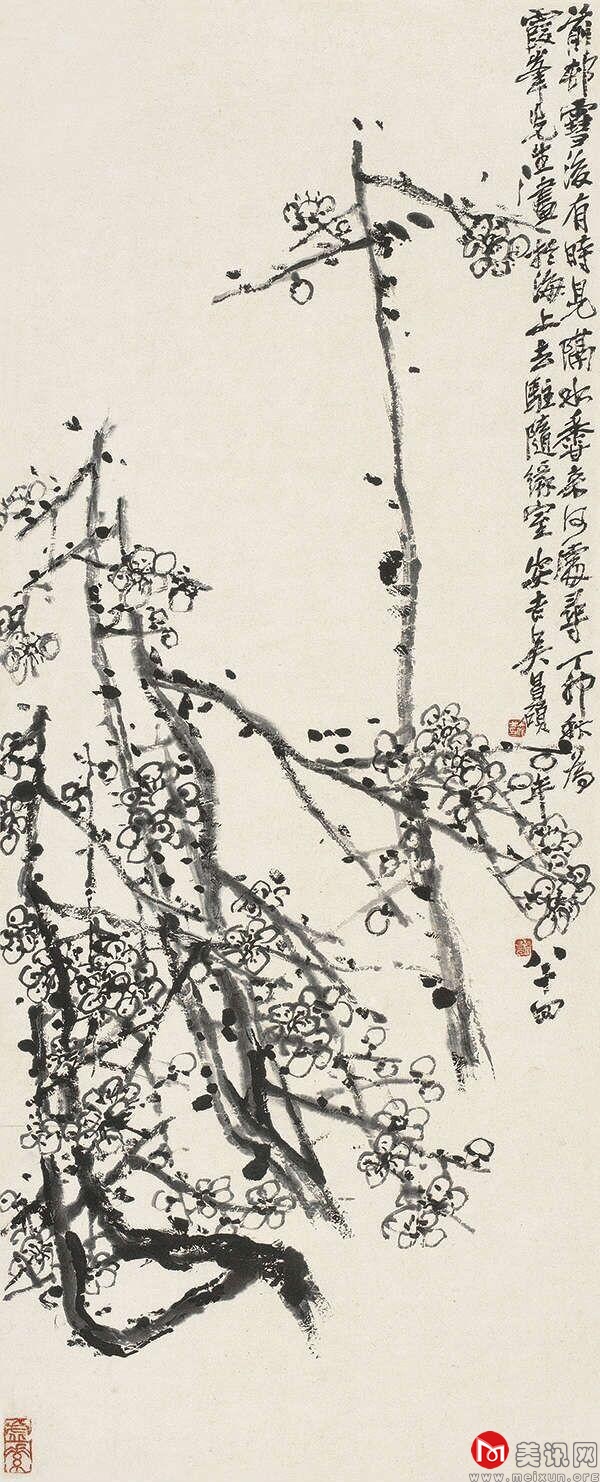 前邨雪後有時見隔水香來何處尋丁卯秋為
霞峯先生畫於海上去駐隨緣室安吉吳昌碩
年
八十四
美讯网
www.meixun.org